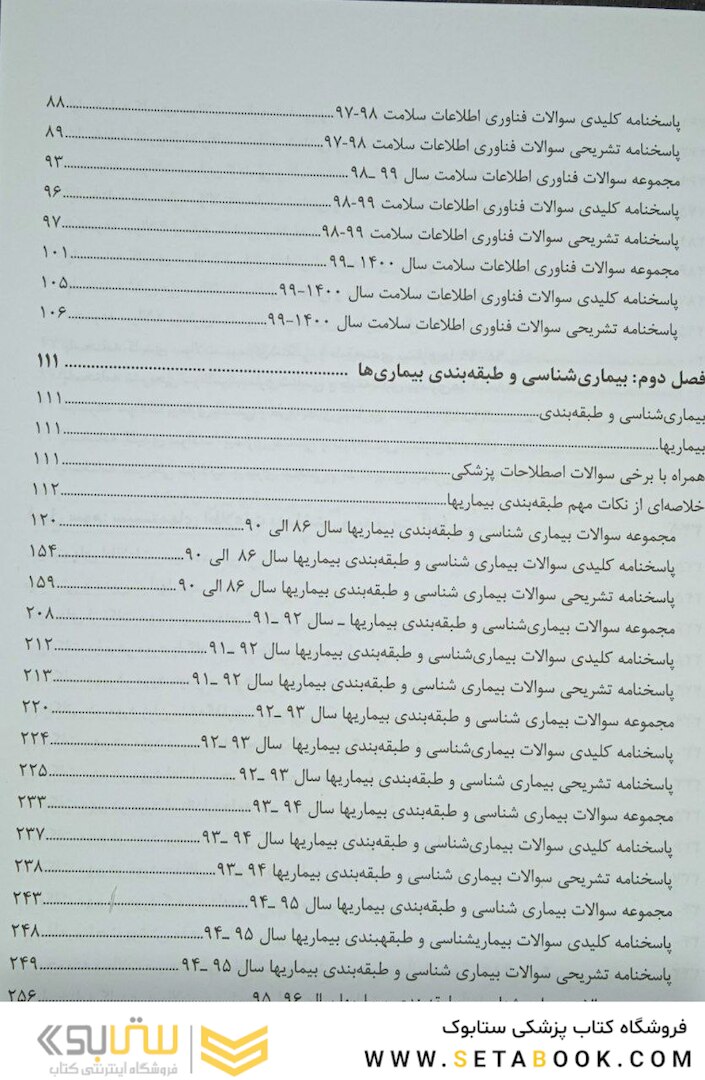 پاسخنامه کلیدی سوالات فناوری اطلاعات سلامت ۹۸-۹۷ ........ ۸۸
پاسخنامه تشریحی سوالات فناوری اطلاعات سلامت ۹۸-۹۷ ........ ۸۹
مجموعه سوالات فناوری اطلاعات سلامت سال ۹۹ ـ۹۸ ........ ۹۳
پاسخنامه کلیدی سوالات فناوری اطلاعات سلامت ۹۹-۹۸ ........ ۹۶
پاسخنامه تشریحی سوالات فناوری اطلاعات سلامت ۹۹-۹۸ ........ ۹۷
مجموعه سوالات فناوری اطلاعات سلامت سال ۱۴۰۰ ـ۹۹ ........ ۱۰۱
پاسخنامه کلیدی سوالات فناوری اطلاعات سلامت سال ۱۴۰۰-۹۹ ........ ۱۰۵
پاسخنامه تشریحی سوالات فناوری اطلاعات سلامت سال ۱۴۰۰-۹۹ ........ ۱۰۶
فصل دوم: بیماری‌شناسی و طبقه‌بندی بیماری‌ها ........ ۱۱۱
بیماری‌شناسی و طبقه‌بندی ........ ۱۱۱
بیماریها ........ ۱۱۱
همراه با برخی سوالات اصطلاحات پزشکی ........ ۱۱۱
خلاصه‌ای از نکات مهم طبقه‌بندی بیماریها ........ ۱۱۲
مجموعه سوالات بیماری شناسی و طبقه‌بندی بیماریها سال ۸۶ الی ۹۰ ........ ۱۲۰
پاسخنامه کلیدی سوالات بیماری شناسی و طبقه‌بندی بیماریها سال ۸۶ الی ۹۰ ........ ۱۵۴
پاسخنامه تشریحی سوالات بیماری شناسی و طبقه‌بندی بیماریها سال ۸۶ الی ۹۰ ........ ۱۵۹
مجموعه سوالات بیماری‌شناسی و طبقه‌بندی بیماریها ـ سال ۹۲ ـ۹۱ ........ ۲۰۸
پاسخنامه کلیدی سوالات بیماری‌شناسی و طبقه‌بندی بیماریها سال ۹۲ ـ۹۱ ........ ۲۱۲
پاسخنامه تشریحی سوالات بیماری شناسی و طبقه‌بندی بیماریها سال ۹۲ ـ۹۱ ........ ۲۱۳
مجموعه سوالات بیماری شناسی و طبقه‌بندی بیماریها سال ۹۳ ـ۹۲ ........ ۲۲۰
پاسخنامه کلیدی سوالات بیماری‌شناسی و طبقه‌بندی بیماریها سال ۹۳ ـ۹۲ ........ ۲۲۴
پاسخنامه تشریحی سوالات بیماری شناسی و طبقه‌بندی بیماریها سال ۹۳ ـ۹۲ ........ ۲۲۵
مجموعه سوالات بیماری شناسی و طبقه‌بندی بیماریها سال ۹۴ ـ۹۳ ........ ۲۳۳
پاسخنامه کلیدی سوالات بیماری‌شناسی و طبقه‌بندی بیماریها سال ۹۴ ـ۹۳ ........ ۲۳۷
پاسخنامه تشریحی سوالات بیماری شناسی و طبقه‌بندی بیماریها ۹۴ ـ۹۳ ........ ۲۳۸
مجموعه سوالات بیماری شناسی و طبقه‌بندی بیماریها سال ۹۵ ـ۹۴ ........ ۲۴۳
پاسخنامه کلیدی سوالات بیماریشناسی و طبقهبندی بیماریها سال ۹۵ ـ۹۴ ........ ۲۴۸
پاسخنامه تشریحی سوالات بیماری شناسی و طبقه‌بندی بیماریها سال ۹۵ ـ۹۴ ........ ۲۴۹
۲۵۶
فروشگاه کتاب پزشکی ستابوک
WWW.SETABOOK.COM
ستابوک
فروشگاه اینترنتی کتاب